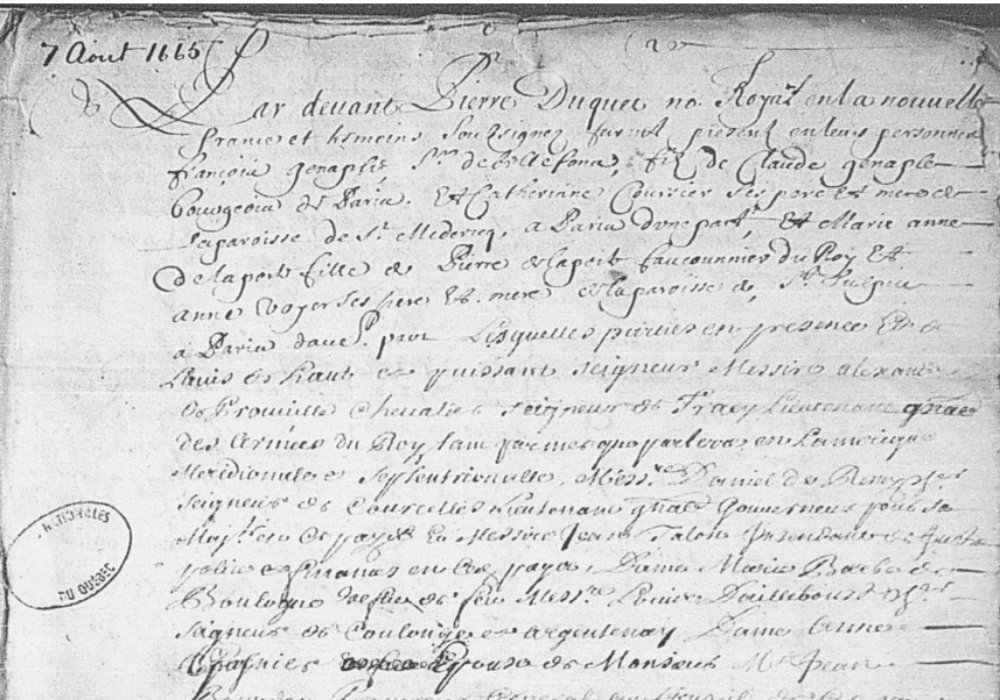 7 Aout 1665
Par devant Pierre Duquet no. Royal en la nouvelle
france et tesmoins soussignez furent present en leurs personnes
françois genaple Sr de bellefond, filz de Claude genaple
bourgeois de Paris. Et Catherine Coursier ses pere et mere de
la paroisse de St. Medericq, a Paris dune part, Et Marie anne
de laporte fille de Pierre de laporte fauconnier du Roy Et
anne voyer ses pere Et mere de la paroisse de St. Sulpice
a Paris dau. part Lesquelles parties en presence Et de
Lavis de haut et puissant seigneur Messire alexandre
de Prouville Chevalier seigneur de Tracy Lieutenant gnal
des Armées du Roy tant par mer que par terre en Lamerique
Meridionale et septentrionalle, Messre Daniel de Remy
seigneur de Courcelles Lieutenant gnal Gouverneur pour sa
Majté en ce pays Et Messire Jean Talon Intendant de Justice
police et finances en ce pays, Dame Marie Barbe de
Boulogne de feu Messre Louis Dailleboust
seigneur de Coulonge et argentenay Dame Anne
Espouse de Monsieur Me Jean
Bourdon Procureur General au Conseil
NATIONALES
DU QUÉBEC